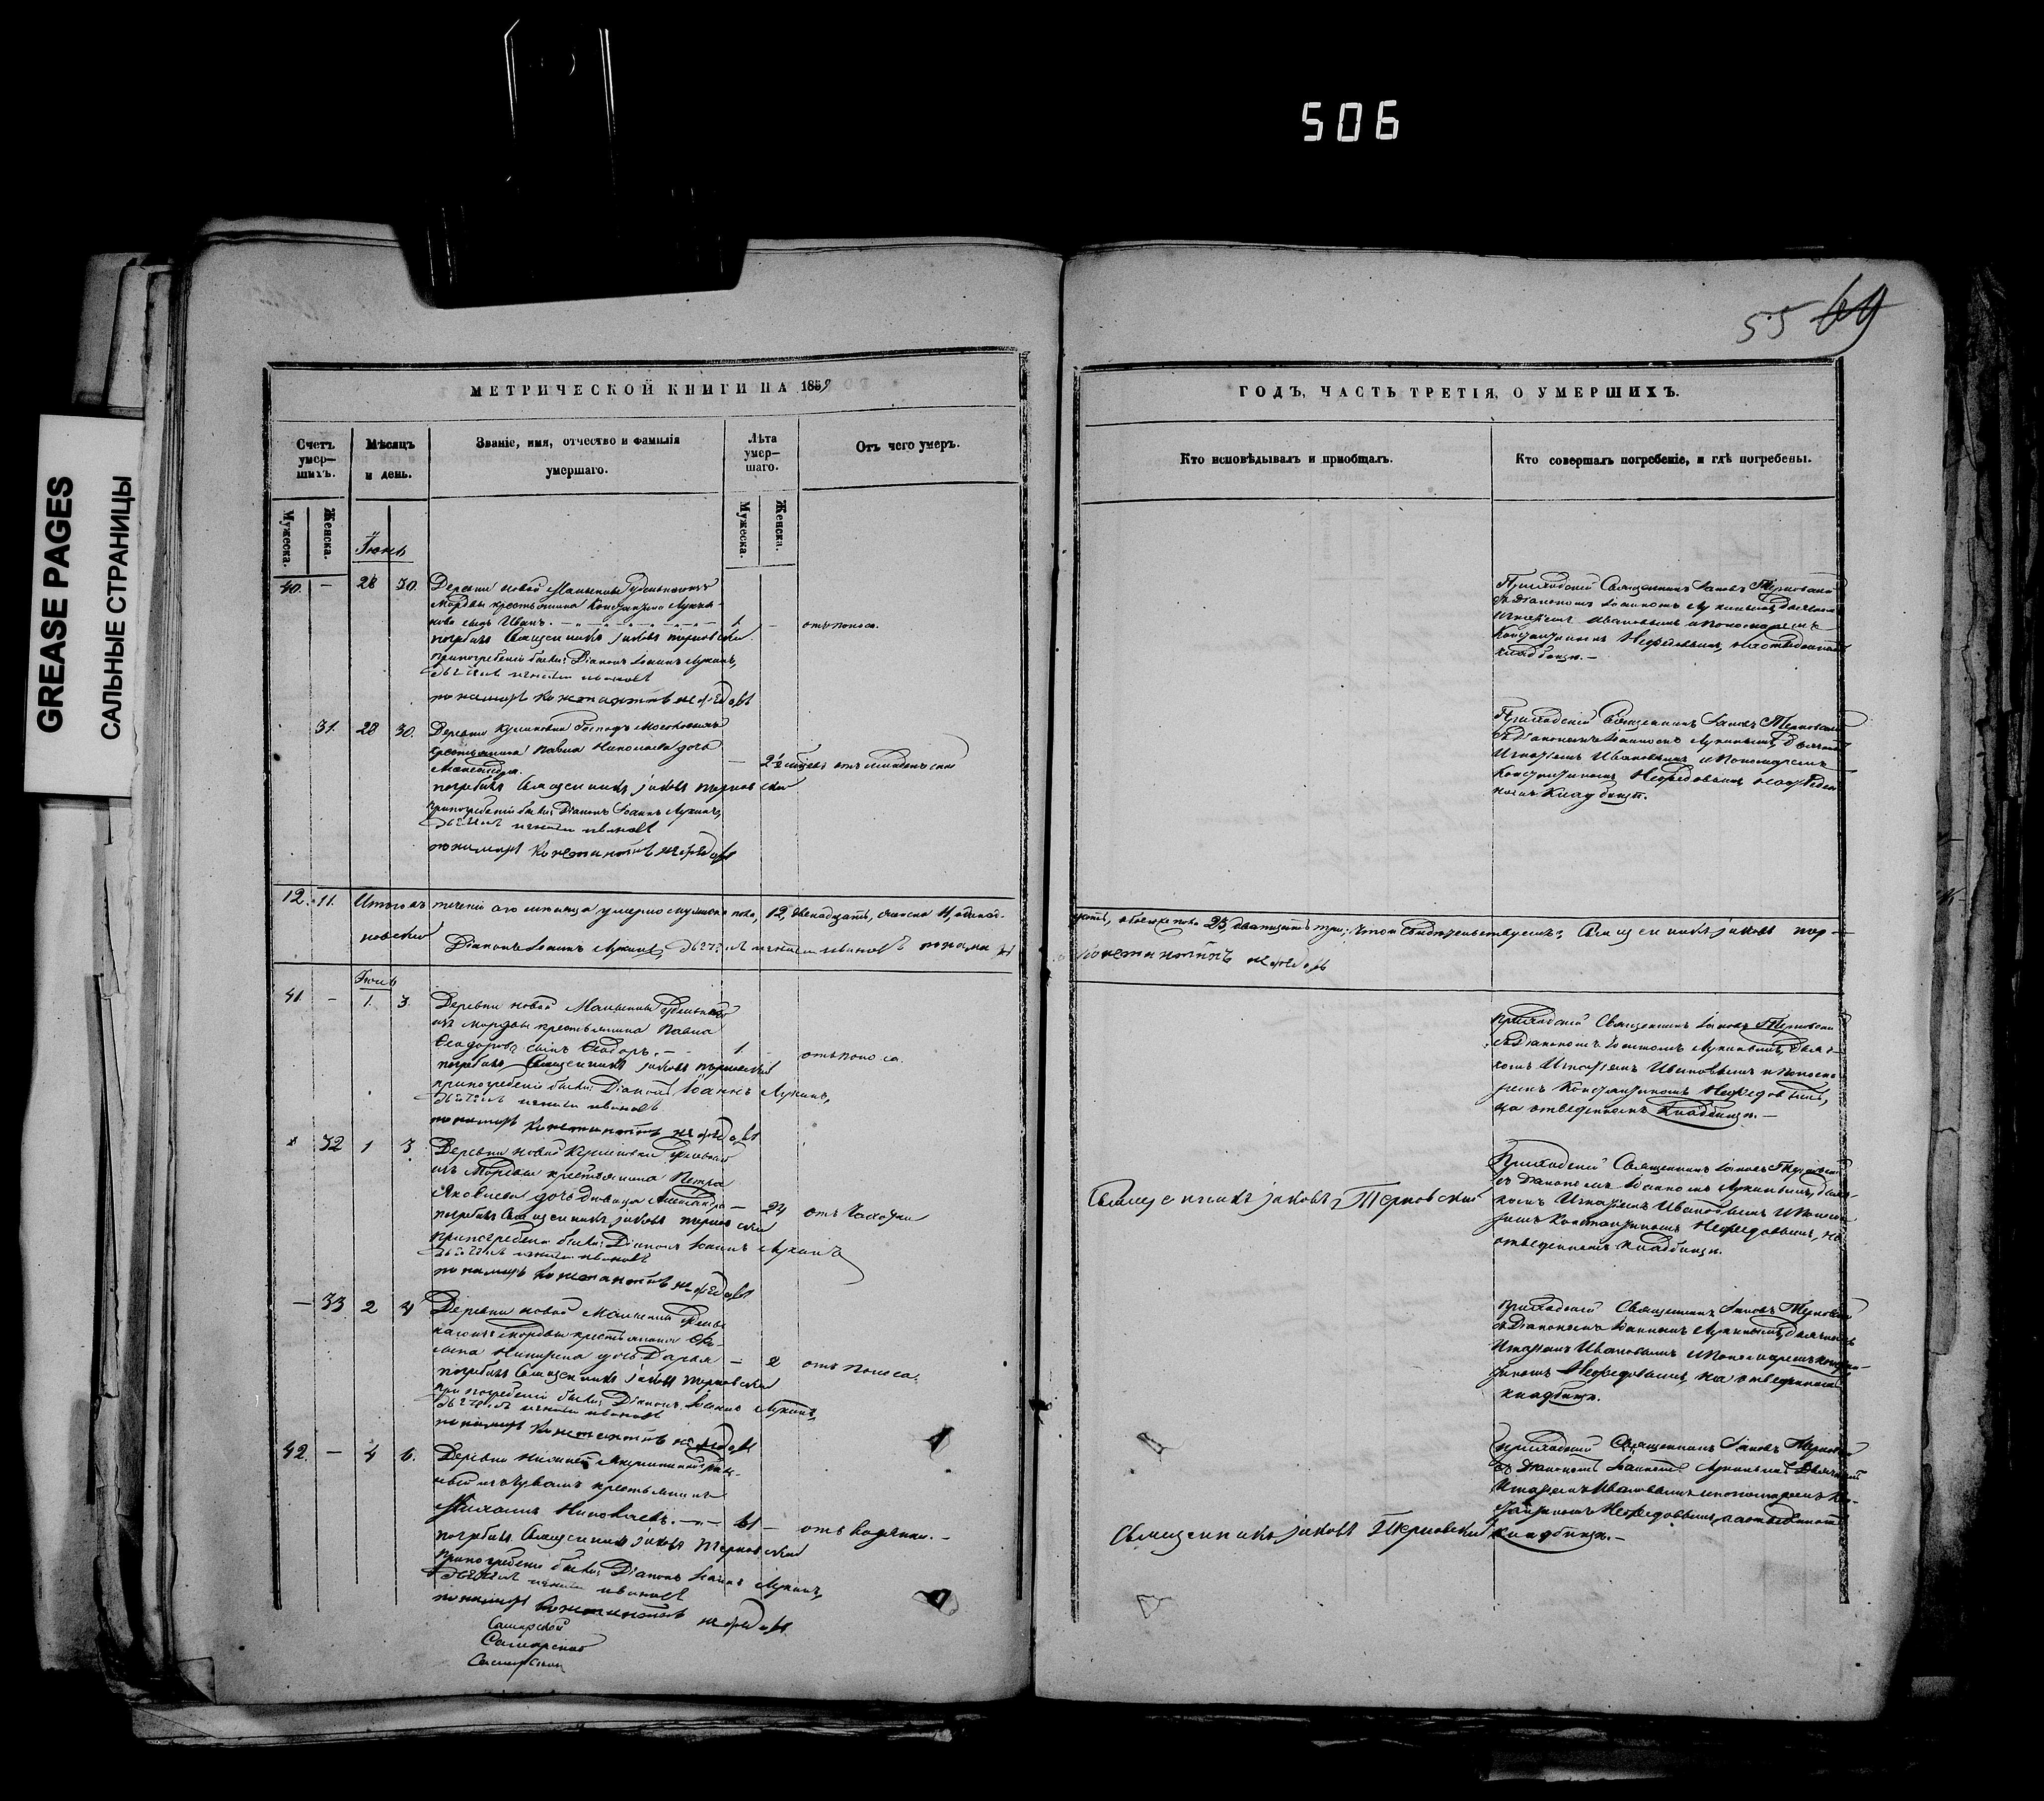 506
GREASE PAGES
САЛЬНЫЕ СТРАНИЦЫ
55 69
МЕТРИЧЕСКОЙ КНИГИ НА 1859
Счетъ умер-
шихъ.
Мѣсяцъ
и день.
Званіе, имя, отчество и фамилія
умершаго.
Лѣта
умер-
шаго.
Отъ чего умеръ.
Мужеска.
Женска.
Мужеска.
Женска.
Іюнь
40. — 28 30. Деревни новой
Мордвы крестьянина Константина
сынъ Иванъ. 1 — отъ поноса.
погребалъ Священникъ Іаковъ Терновскій
при погребеніи были: Діаконъ Іоаннъ Лукинъ,
дьячекъ игнатій ивановъ
пономарь Константинъ нефедовъ
31. 28 30. Деревни Господъ
крестьянина Павла Николаева дочь
Александра. — 2½
погребалъ Священникъ Іаковъ Терновскій
при погребеніи были: Діаконъ Іоаннъ Лукинъ,
дьячекъ игнатій ивановъ
пономарь Константинъ нефедовъ
12. 11. Итого въ теченіи сего мѣсяца умерло мужеска пола, 12, двенадцать, женска 11, одинад-
новскій Діаконъ Іоаннъ Лукинъ, дьячекъ игнатій ивановъ понома
Іюль
41. — 1. 3. Деревни новой
изъ мордвы крестьянина Павла
Ѳеодорова сынъ Ѳеодоръ. — 1. отъ поноса.
погребалъ Священникъ Іаковъ Терновскій
при погребеніи были: Діаконъ Іоаннъ Лукинъ,
дьячекъ игнатій ивановъ
пономарь Константинъ нефедовъ
32 1 3. Деревни новой
изъ Мордвы крестьянина Петра
Яковлева дочь девица Александра — 24 отъ Чахотки
погребалъ Священникъ Іаковъ Терновскій
при погребеніи были: Діаконъ Іоаннъ Лукинъ
дьячекъ игнатій ивановъ
пономарь Константинъ нефедовъ
— 33 2 4 Деревни новой
мордвы крестьянина
дочь Дарья — 2 отъ поноса.
погребалъ Священникъ Іаковъ Терновскій
при погребеніи были: Діаконъ Іоаннъ Лукинъ,
дьячекъ игнатій ивановъ
пономарь Константинъ нефедовъ
42. — 4 6. Деревни
крестьянинъ
Михаилъ Николаевъ. 61 — отъ водянки. —
погребалъ Священникъ Іаковъ Терновскій
при погребеніи были: Діаконъ Іоаннъ Лукинъ,
дьячекъ игнатій ивановъ
пономарь Константинъ нефедовъ
Самарской
Самарской
Самарской
ГОДЪ, ЧАСТЬ ТРЕТІЯ, О УМЕРШИХЪ.
Кто исповѣдывалъ и пріобщалъ.
Кто совершалъ погребеніе, и гдѣ погребены.
Приходскій Священникъ Іаковъ Терновскій
съ Діакономъ Іоанномъ Лукинымъ, дьячкомъ
Игнатіемъ Ивановымъ и Пономаремъ
Константиномъ Нефедовымъ, на отведенномъ
кладбищѣ. —
Приходскій Священникъ Іаковъ Терновскій
съ Діакономъ Іоанномъ Лукинымъ, дьячкомъ
Игнатіемъ Ивановымъ и Пономаремъ
Константиномъ Нефедовымъ, на отведен
номъ Кладбищѣ.
цать, обоего пола 23, двадцать три; въ томъ свидѣтельствуемъ: Священникъ Іаковъ Тер-
Константинъ нефедовъ
Приходскій Священникъ Іаковъ Терновскій
съ Діакономъ Іоанномъ Лукинымъ, дьяч-
комъ Игнатіемъ Ивановымъ и Понома-
ремъ Константиномъ Нефедовымъ,
на отведенномъ Кладбищѣ. —
Священникъ Іаковъ Терновскій
Приходскій Священникъ Іаковъ Терновскій
съ Діакономъ Іоанномъ Лукинымъ, дьяч-
комъ Игнатіемъ Ивановымъ и Понома-
ремъ Константиномъ Нефедовымъ, на
отведенномъ кладбищѣ.
Приходскій Священникъ Іаковъ Терновскій
съ Діакономъ Іоанномъ Лукинымъ, дьячкомъ
Игнатіемъ Ивановымъ и Пономаремъ Констан-
тиномъ Нефедовымъ, на отведенномъ
кладбищѣ.
Священникъ Іаковъ Терновскій
Приходскій Священникъ Іаковъ Терновскій
съ Діакономъ Іоанномъ Лукинымъ Дьячкомъ
Игнатіемъ Ивановымъ и пономаремъ Кон-
стантиномъ Нефедовымъ, на отведенномъ
кладбищѣ. —